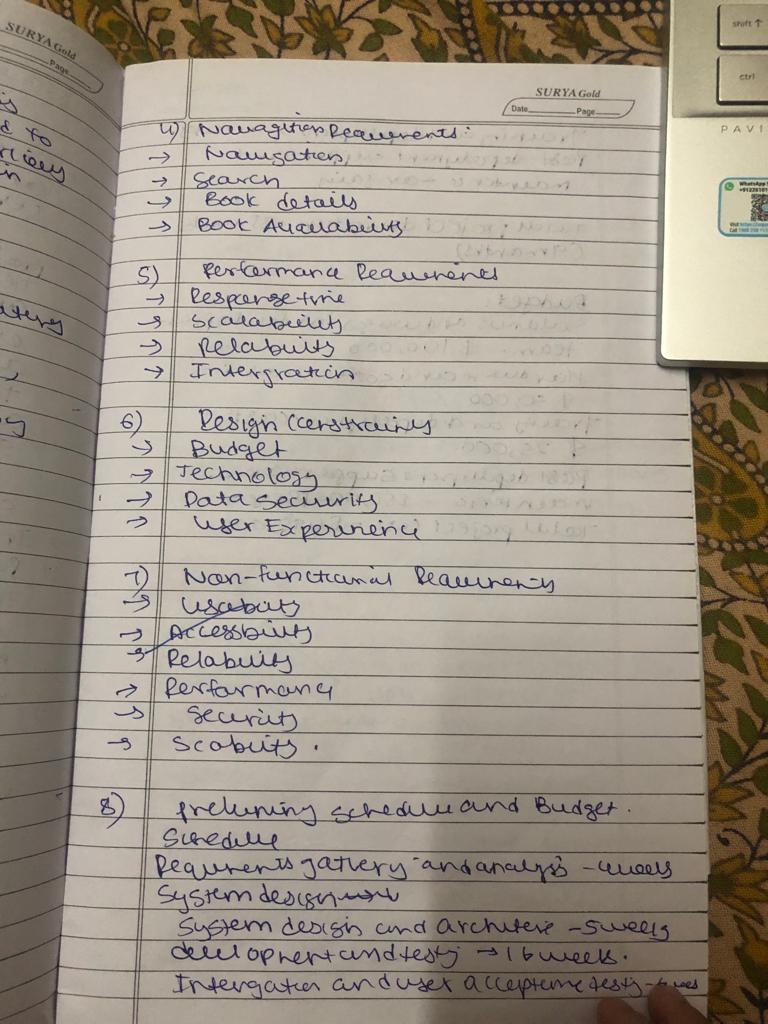 SURYA Gold
Page
is
d to
in
SURYA Gold
Date Page
4) Navagition Requirements:
→ Navigation
→ Search
→ Book details
→ Book Availability
5) Performance Requirements
→ Response time
→ Scalability
→ Relability
→ Intergration
6) Design Constrainy
→ Budget
→ Technology
→ Data Security
→ User Experience
7) Non-functional Requirements
→ Usability
→ Accessbility
→ Relability
→ Performance
→ Security
→ Scability.
8) preluming schedule and Budget.
Schedule
Requirments gathery and analysis - 4weeks
System design
System design and architere - 5 weeks
development and testy → 16 week.
Intergation and user acceptence testy -
shift ↑
ctrl
PAVI
WhatsApp